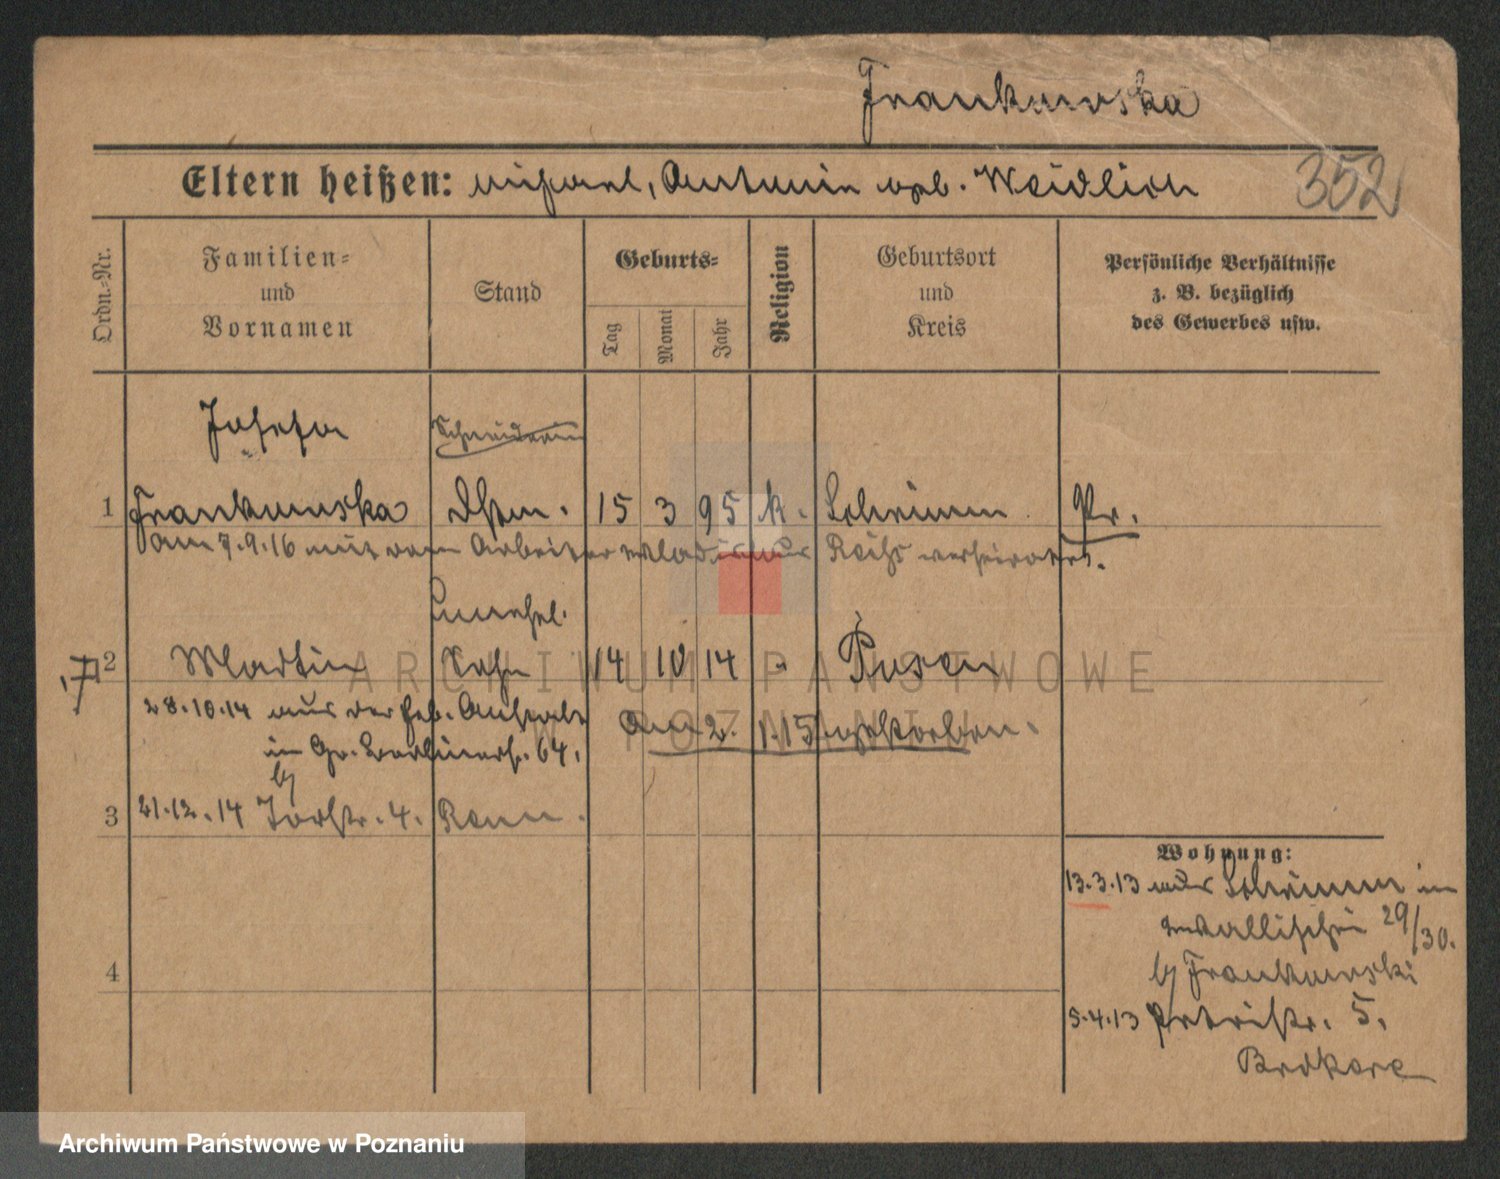 Frankowska
Eltern heißen: Michael, Antonie geb. Weidlich
352
Ordn.-Nr.
Familien-
und
Vornamen
Stand
Geburts-
Tag
Monat
Jahr
Religion
Geburtsort
und
Kreis
Persönliche Verhältnisse
z. B. bezüglich
des Gewerbes usw.
Josefa
Schneiderin
1 Frankowska 15 3 95 k. Schrimm Pr.
am 7.9.16 mit dem Arbeiter Wladislaus verheiratet.
unehel.
2 Martin Sohn 14 10 14 " Posen
28.10.14 aus der Heb. Anstalt am 2. 1.15 gestorben.
in Gr. Berlinerst. 64.
b/
3 21.12.14 Torstr. 4.
Wohnung:
13.3.13 aus Schrimm in
Wallischei 29/30.
b/ Frankowski
5.4.13 Petristr. 5.
4
ARCHIWUM PAŃSTWOWE
W POZNANIU
Archiwum Państwowe w Poznaniu